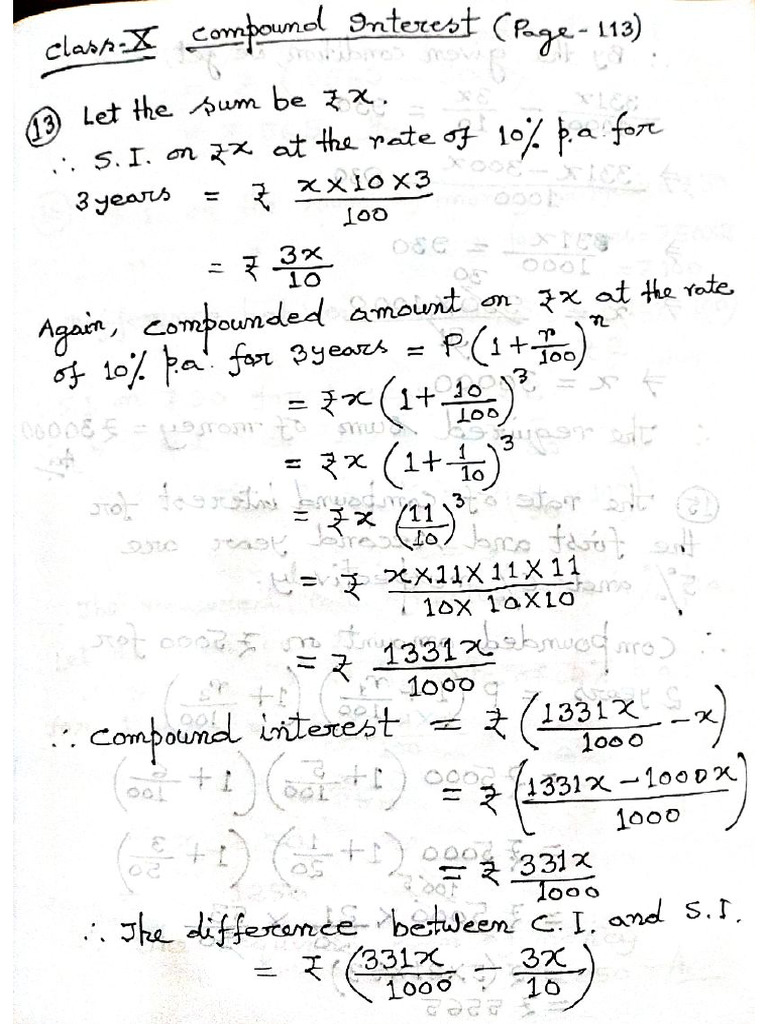 Class-X Compound Interest (Page-113)
(13) Let the sum be ₹x.
∴ S.I. on ₹x at the rate of 10% p.a. for
3 years = ₹ (x×10×3)/100
= ₹ 3x/10
Again, compounded amount on ₹x at the rate
of 10% p.a. for 3 years = P(1+r/100)^n
= ₹x(1+10/100)^3
= ₹x (1+1/10)^3
= ₹x (11/10)^3
= ₹ (x×11×11×11)/(10×10×10)
= ₹ 1331x/1000
∴ Compound interest = ₹(1331x/1000 - x)
= ₹((1331x-1000x)/1000)
= ₹ 331x/1000
∴ The difference between C.I. and S.I.
= ₹(331x/1000 - 3x/10)